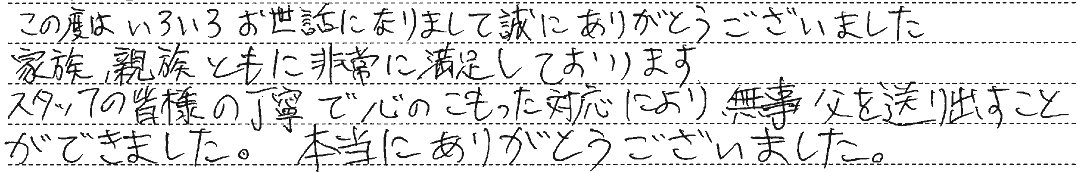 この度はいろいろお世話になりまして誠にありがとうございました
家族、親族ともに非常に満足しております
スタッフの皆様の丁寧で心のこもった対応により無事父を送り出すこと
ができました。 本当にありがとうございました。